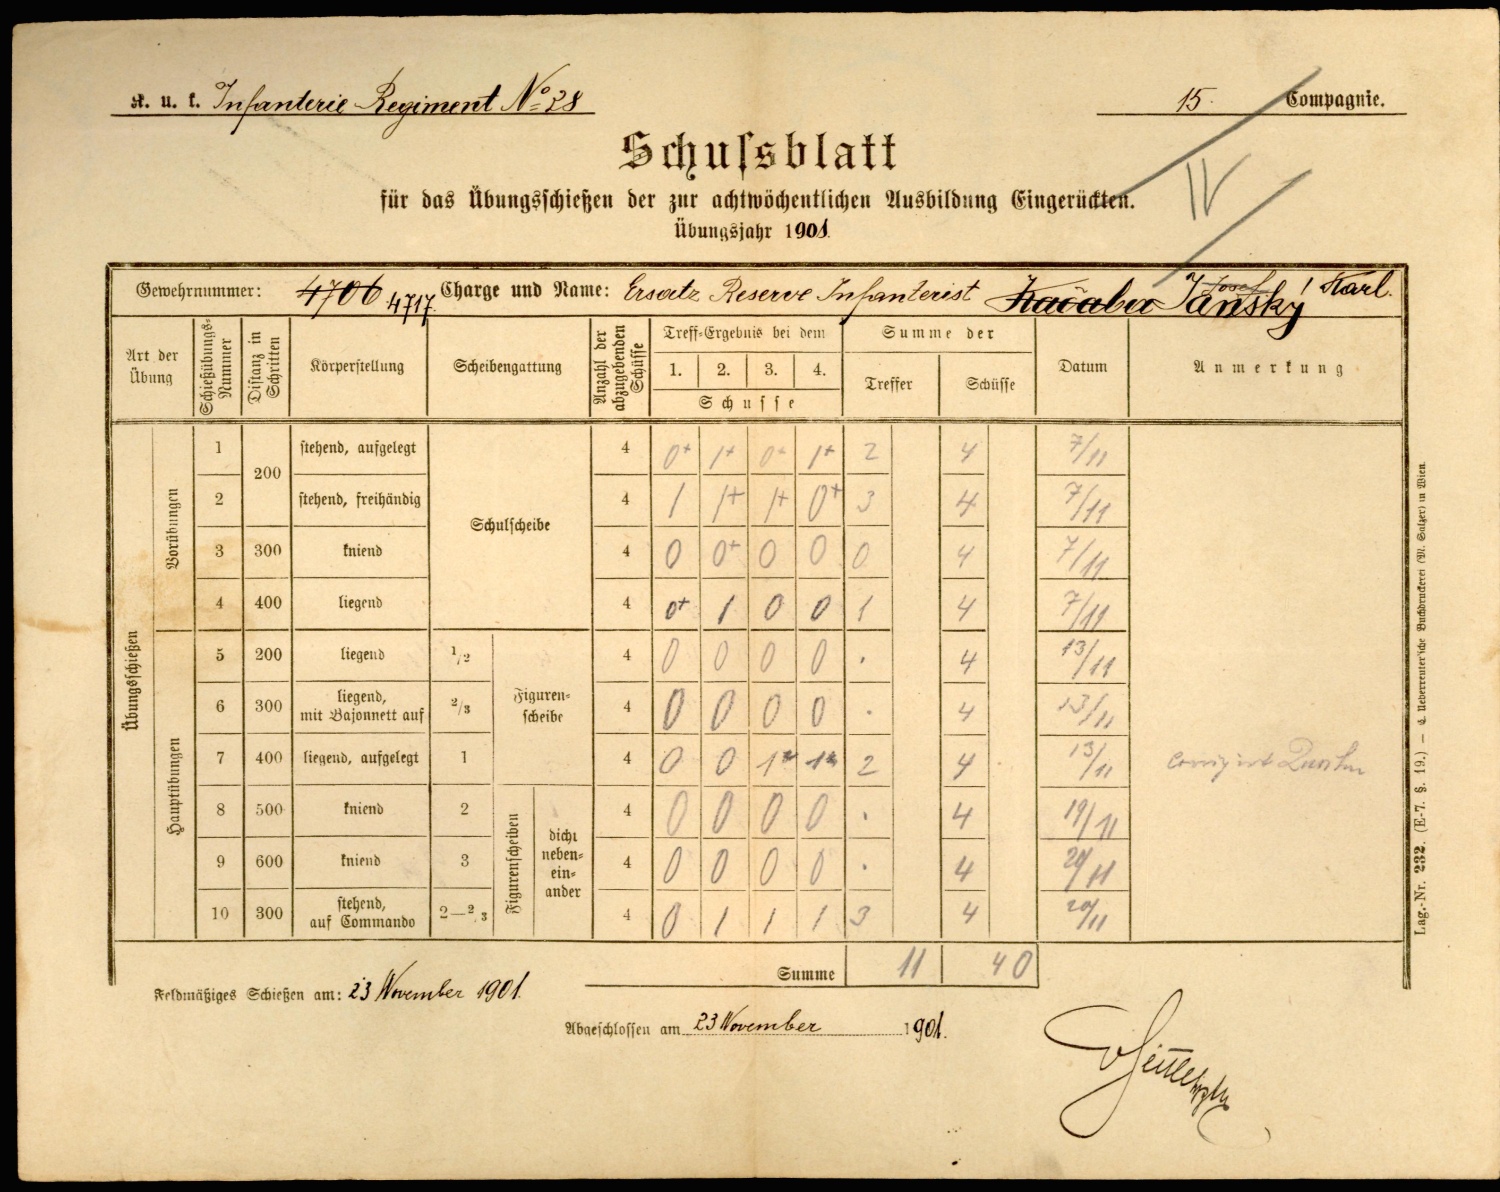 K. u. k. Infanterie Regiment No 28
15. Compagnie.
Schussblatt
IV
für das Übungsschießen der zur achtwöchentlichen Ausbildung Eingerückten.
Übungsjahr 1901.
Gewehrnummer: 4706 4717. Charge und Name: Ersatz Reserve Infanterist Kačaba Josef Janský Karl.
Art der Übung Schießübungs-Nummer Distanz in Schritten Körperstellung Scheibengattung Anzahl der abzugebenden Schüsse Treff-Ergebnis bei dem Summe der Datum Anmerkung
1. 2. 3. 4. Treffer Schüsse
Schusse
Übungsschießen
Vorübungen
1 200 stehend, aufgelegt Schulscheibe 4 0+ 1+ 0+ 1+ 2 4 7/11
2 stehend, freihändig 4 1 1+ 1+ 0+ 3 4 7/11
3 300 kniend 4 0 0+ 0 0 0 4 7/11
4 400 liegend 4 0+ 1 0 0 1 4 7/11
Hauptübungen
5 200 liegend 1/2 Figuren-scheibe 4 0 0 0 0 . 4 13/11
6 300 liegend, mit Bajonnett auf 2/3 4 0 0 0 0 . 4 13/11
7 400 liegend, aufgelegt 1 4 0 0 1 1 2 4 13/11 corrigirt
8 500 kniend 2 Figurenscheiben dicht neben-ein-ander 4 0 0 0 0 . 4 19/11
9 600 kniend 3 4 0 0 0 0 . 4 20/11
10 300 stehend, auf Commando 2—2/3 4 0 1 1 1 3 4 20/11
Summe 11 40
Feldmäßiges Schießen am: 23 November 1901.
Abgeschlossen am 23 November 1901.
Lag.-Nr. 232. (E-7. §. 19.) — k. Ueberreuter'sche Buchdruckerei (M. Salzer) in Wien.